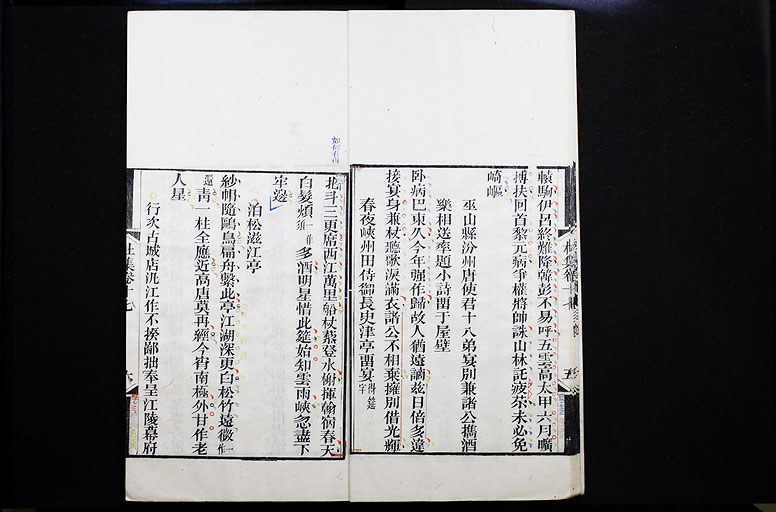 轅駒伊呂終難降韓彭不易呼五雲高太甲六月曠
摶扶回首黎元病爭權將帥誅山林託疲苶未必免
崎嶇
巫山縣汾州唐使君十八弟宴別兼諸公攜酒
樂相送率題小詩留于屋壁
臥病巴東久今年强作歸故人猶遠謫茲日倍多違
接宴身兼杖聽歌淚滿衣諸公不相棄擁別借光輝
春夜峽州田侍御長史津亭留宴得筵字
北斗三更席西江萬里船杖藜登水榭揮翰宿春天
白髮煩一作須多酒明星惜此筵始知雲雨峽忽盡下
牢邊
泊松滋江亭
紗帽隨鷗鳥扁舟繫此亭江湖深更白松竹遠微一作
還青一柱全應近高唐莫再經今宵南極外甘作老
人星
行次古城店汎江作不揆鄙拙奉呈江陵幕府
杜集卷十七
六
五